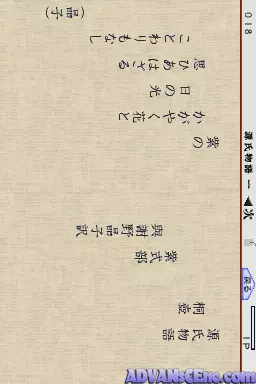 源氏物語
桐壺
紫式部
與謝野晶子訳
紫の
かがやく花と
日の光
思ひあはざる
ことわりもなし
(晶子)
018
源氏物語 一
◀次
戻る
1P
ADVANSCENE.COM